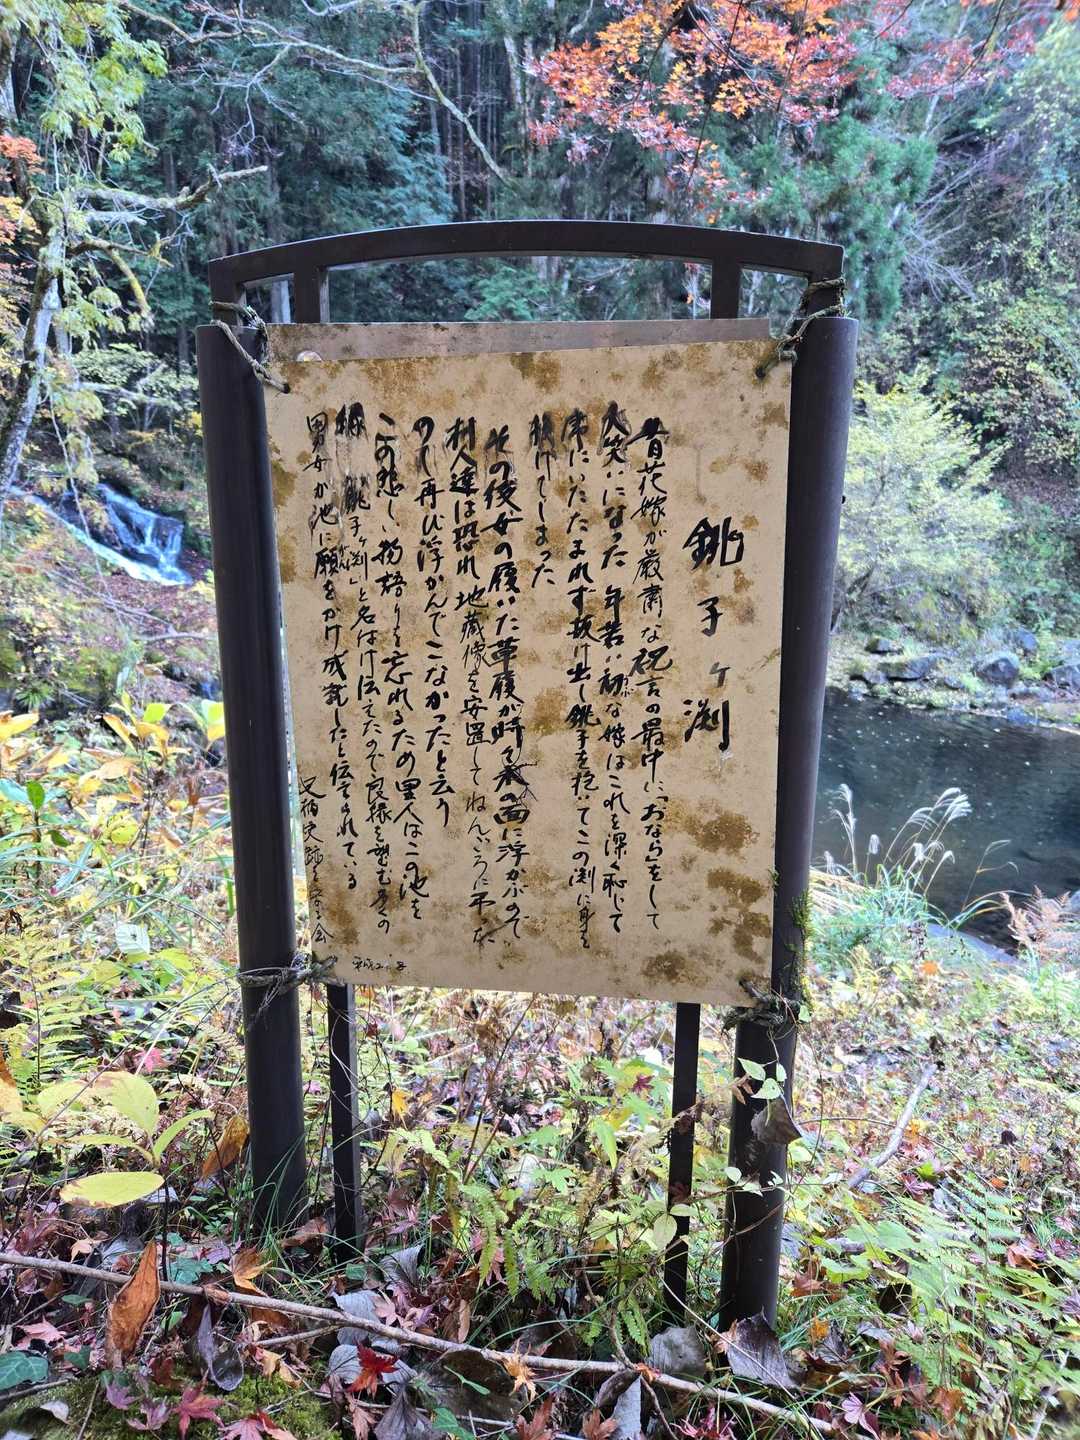 銚子ヶ渕
昔花嫁が厳粛な祝言の最中に「おなら」をして
大笑いになった 年若い初な嫁はこれを深く恥じて
席にいたたまれず抜け出し銚子を抱いてこの渕に身を
投げてしまった
その後女の履いた草履が時々水の面に浮かぶので
村人達は恐れ地蔵像を安置してねんごろに弔った
のし再び浮かんでこなかったと云う
この悲しい物語りを忘れるため里人はこの池を
縁 銚子ヶ渕」と名付け伝えたので良縁を望む多くの
男女が池に願をかけ成就したと伝えられている
史跡 会
平成